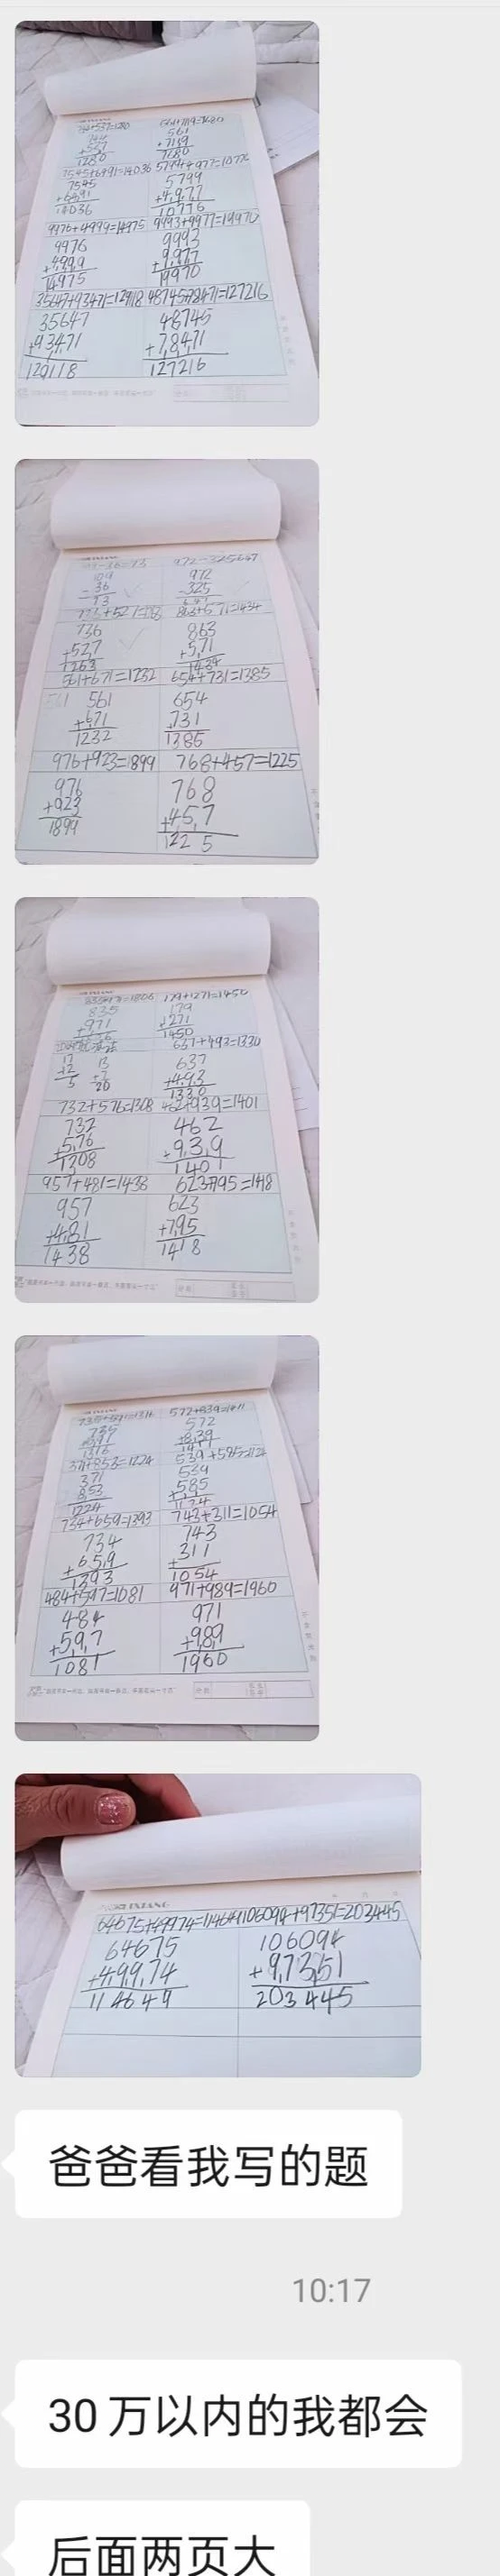 5799
+4977
10776
9976+4999=14975 9993+9977=19970
9976
+4999
14975
9993
+9977
19970
35647+93471=129118 48745+78471=127216
35647
+93471
129118
48745
+78471
127216
109
- 36
73
972
-325
736
+527
1263
863
+571
1434
561+671=1232 654+731=1385
561
+671
1232
654
731
1385
976+923=1899 768+457=1225
976
+923
1899
768
+457
1225
835
+971
179+1271=1450
179
+1271
1450
637+493=1330
637
+493
1330
732+576=1308 462+939=1401
732
+576
1308
462
+939
1401
957+481=1438 623+795=1418
957
+481
1438
623
+795
1418
572+839=1411
572
+839
1411
371+853=1224 539+585=1124
371
853
1224
539
585
1124
734+659=1393 743+311=1054
734
+659
1393
743
+311
1054
484+597=1081 971+989=1960
484
+597
1081
971
+989
1960
64675+49974=114649 106094+97351=203445
64675
+49974
114649
106094
+97351
203445
爸爸看我写的题
10:17
30万以内的我都会
后面两页大